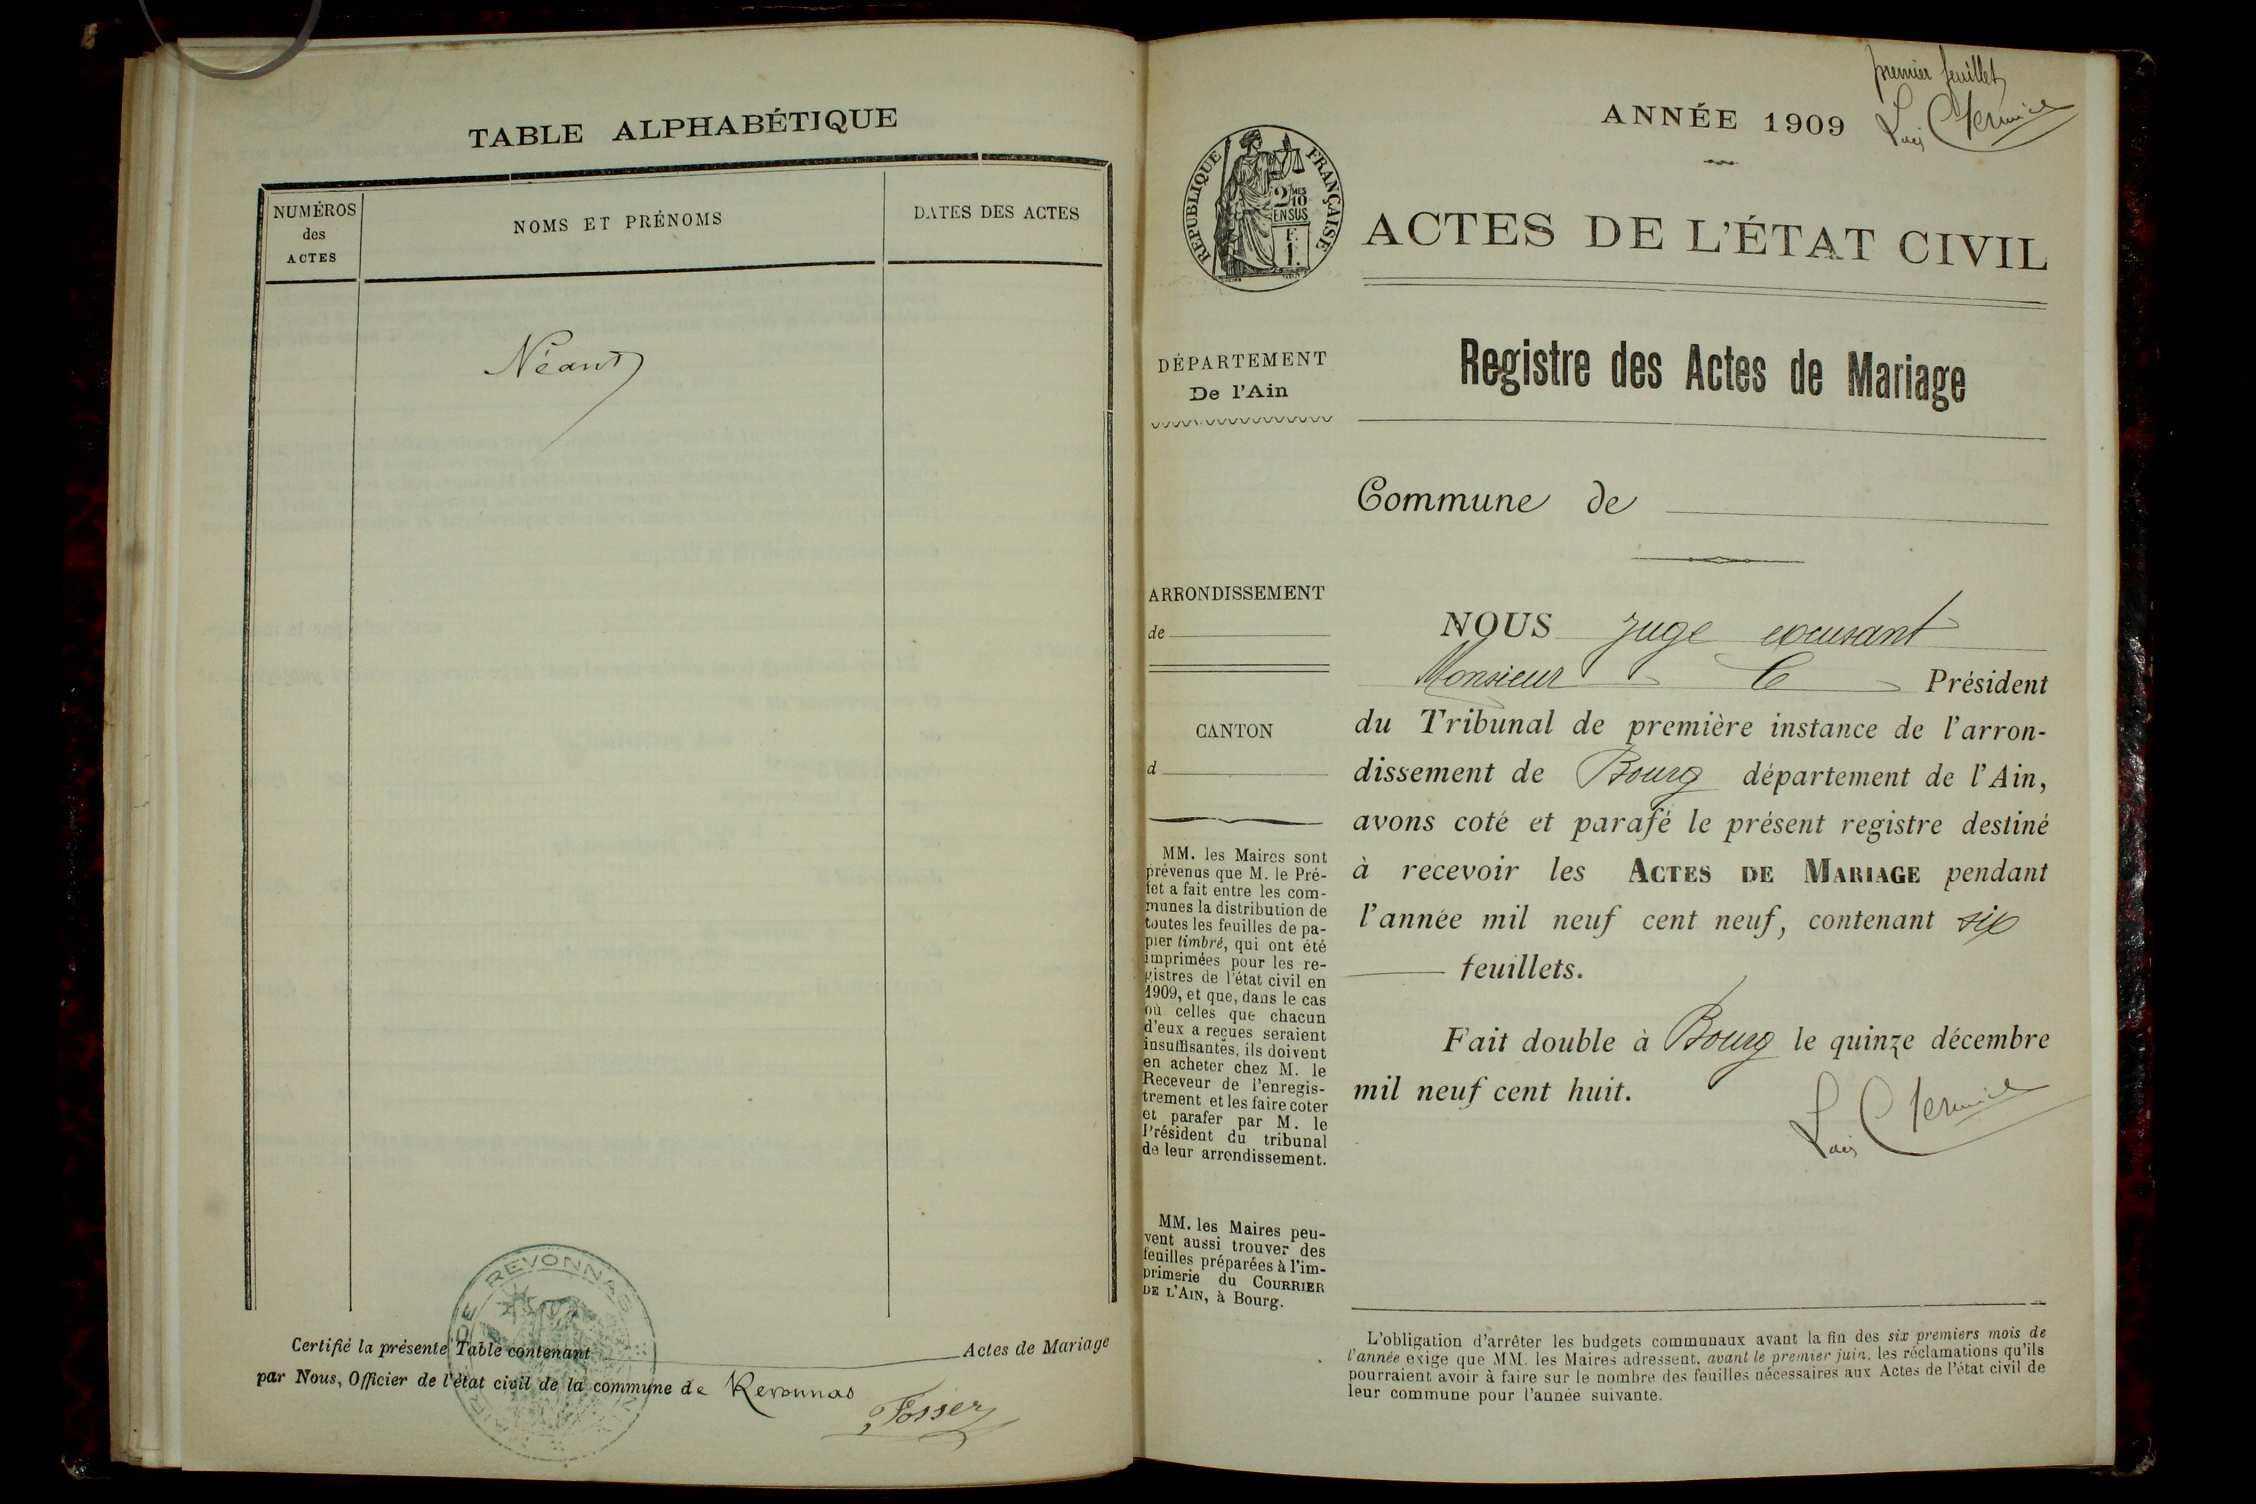 TABLE ALPHABÉTIQUE
NUMÉROS
des
ACTES
NOMS ET PRÉNOMS
DATES DES ACTES
Néant
Certifié la présente Table contenant Actes de Mariage
par Nous, Officier de l'état civil de la commune de Revonnas
DE REVONNAS
premier feuillet
ANNÉE 1909
RÉPUBLIQUE FRANÇAISE
2 MES
10
EN SUS
F.
1.
ACTES DE L'ÉTAT CIVIL
DÉPARTEMENT
De l'Ain
Registre des Actes de Mariage
Commune de
ARRONDISSEMENT
de
CANTON
d
MM. les Maires sont
prévenus que M. le Pré-
fet a fait entre les com-
munes la distribution de
toutes les feuilles de pa-
pier timbré, qui ont été
imprimées pour les re-
gistres de l'état civil en
1909, et que, dans le cas
où celles que chacun
d'eux a reçues seraient
insuffisantes, ils doivent
en acheter chez M. le
Receveur de l'enregis-
trement et les faire coter
et parafer par M. le
Président du tribunal
de leur arrondissement.
MM. les Maires peu-
vent aussi trouver des
feuilles préparées à l'im-
primerie du COURRIER
DE L'AIN, à Bourg.
NOUS juge excusant
Monsieur le Président
du Tribunal de première instance de l'arron-
dissement de Bourg département de l'Ain,
avons coté et parafé le présent registre destiné
à recevoir les ACTES DE MARIAGE pendant
l'année mil neuf cent neuf, contenant six
feuillets.
Fait double à Bourg le quinze décembre
mil neuf cent huit.
L'obligation d'arrêter les budgets communaux avant la fin des six premiers mois de
l'année exige que MM. les Maires adressent, avant le premier juin, les réclamations qu'ils
pourraient avoir à faire sur le nombre des feuilles nécessaires aux Actes de l'état civil de
leur commune pour l'année suivante.